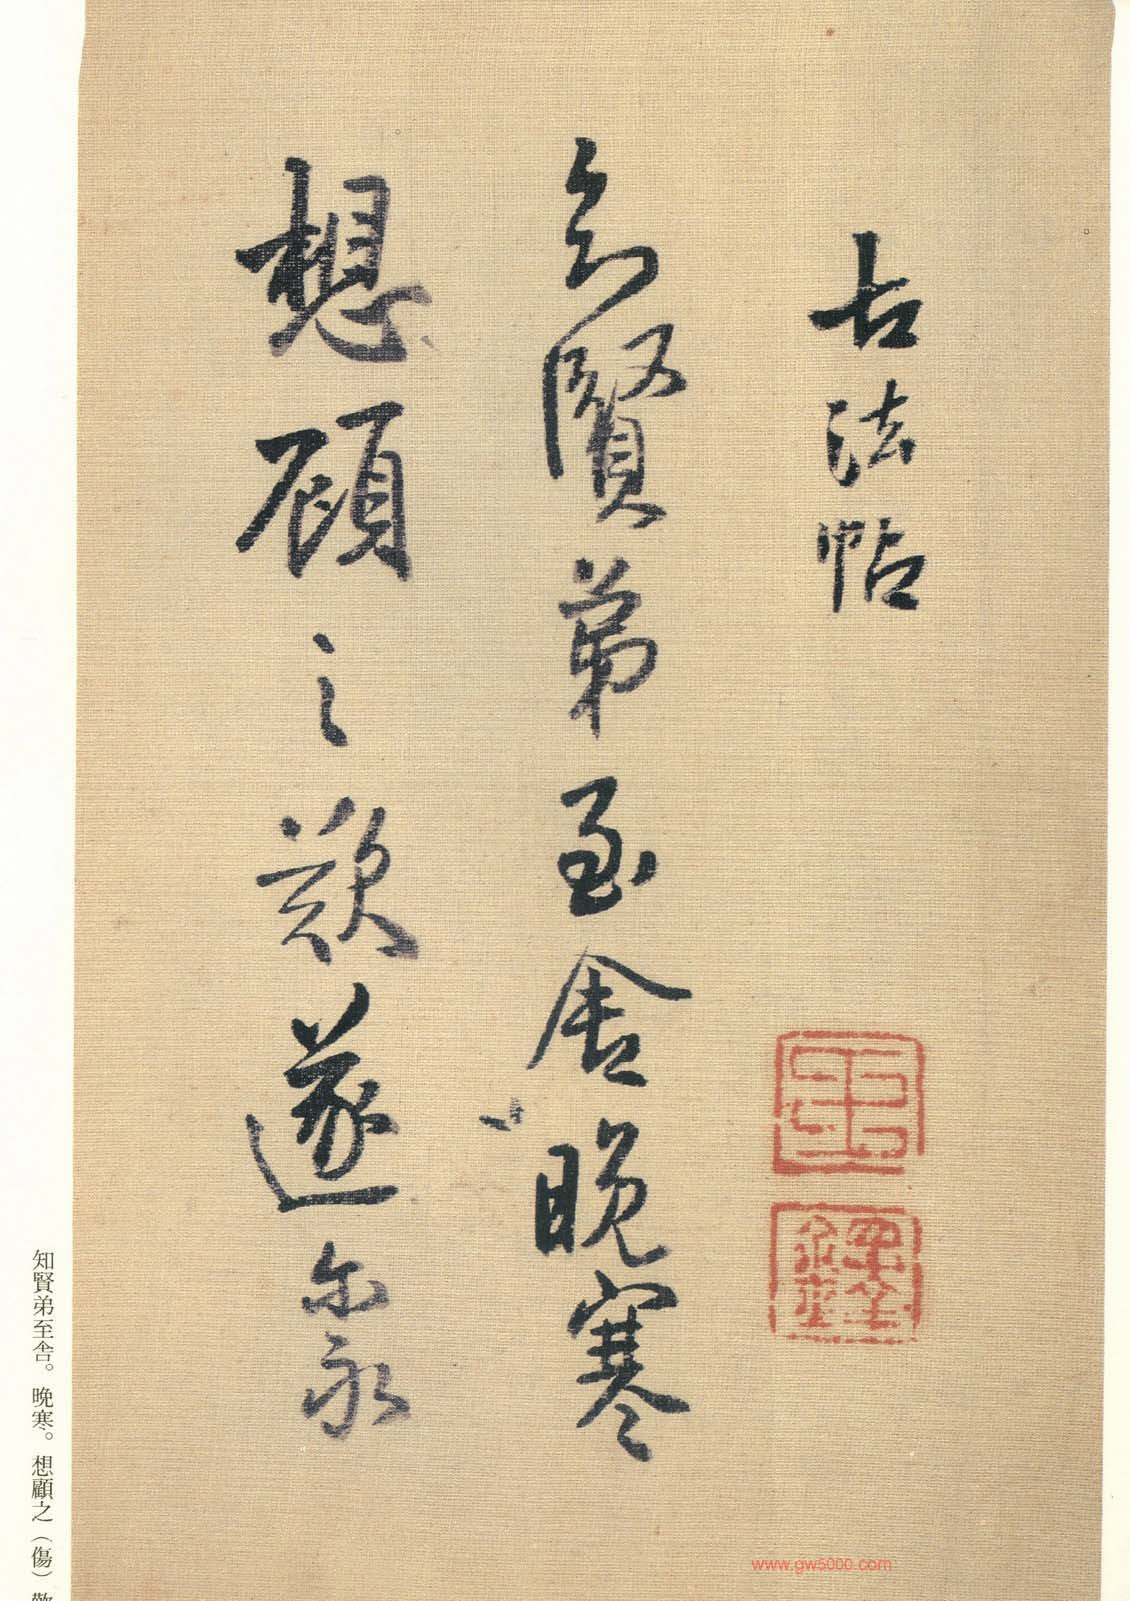 古法帖
知賢弟至舍晚寒
想顧之歎遂尔永
知賢弟至舎。晩寒。想顧之（傷）
www.gw5000.com